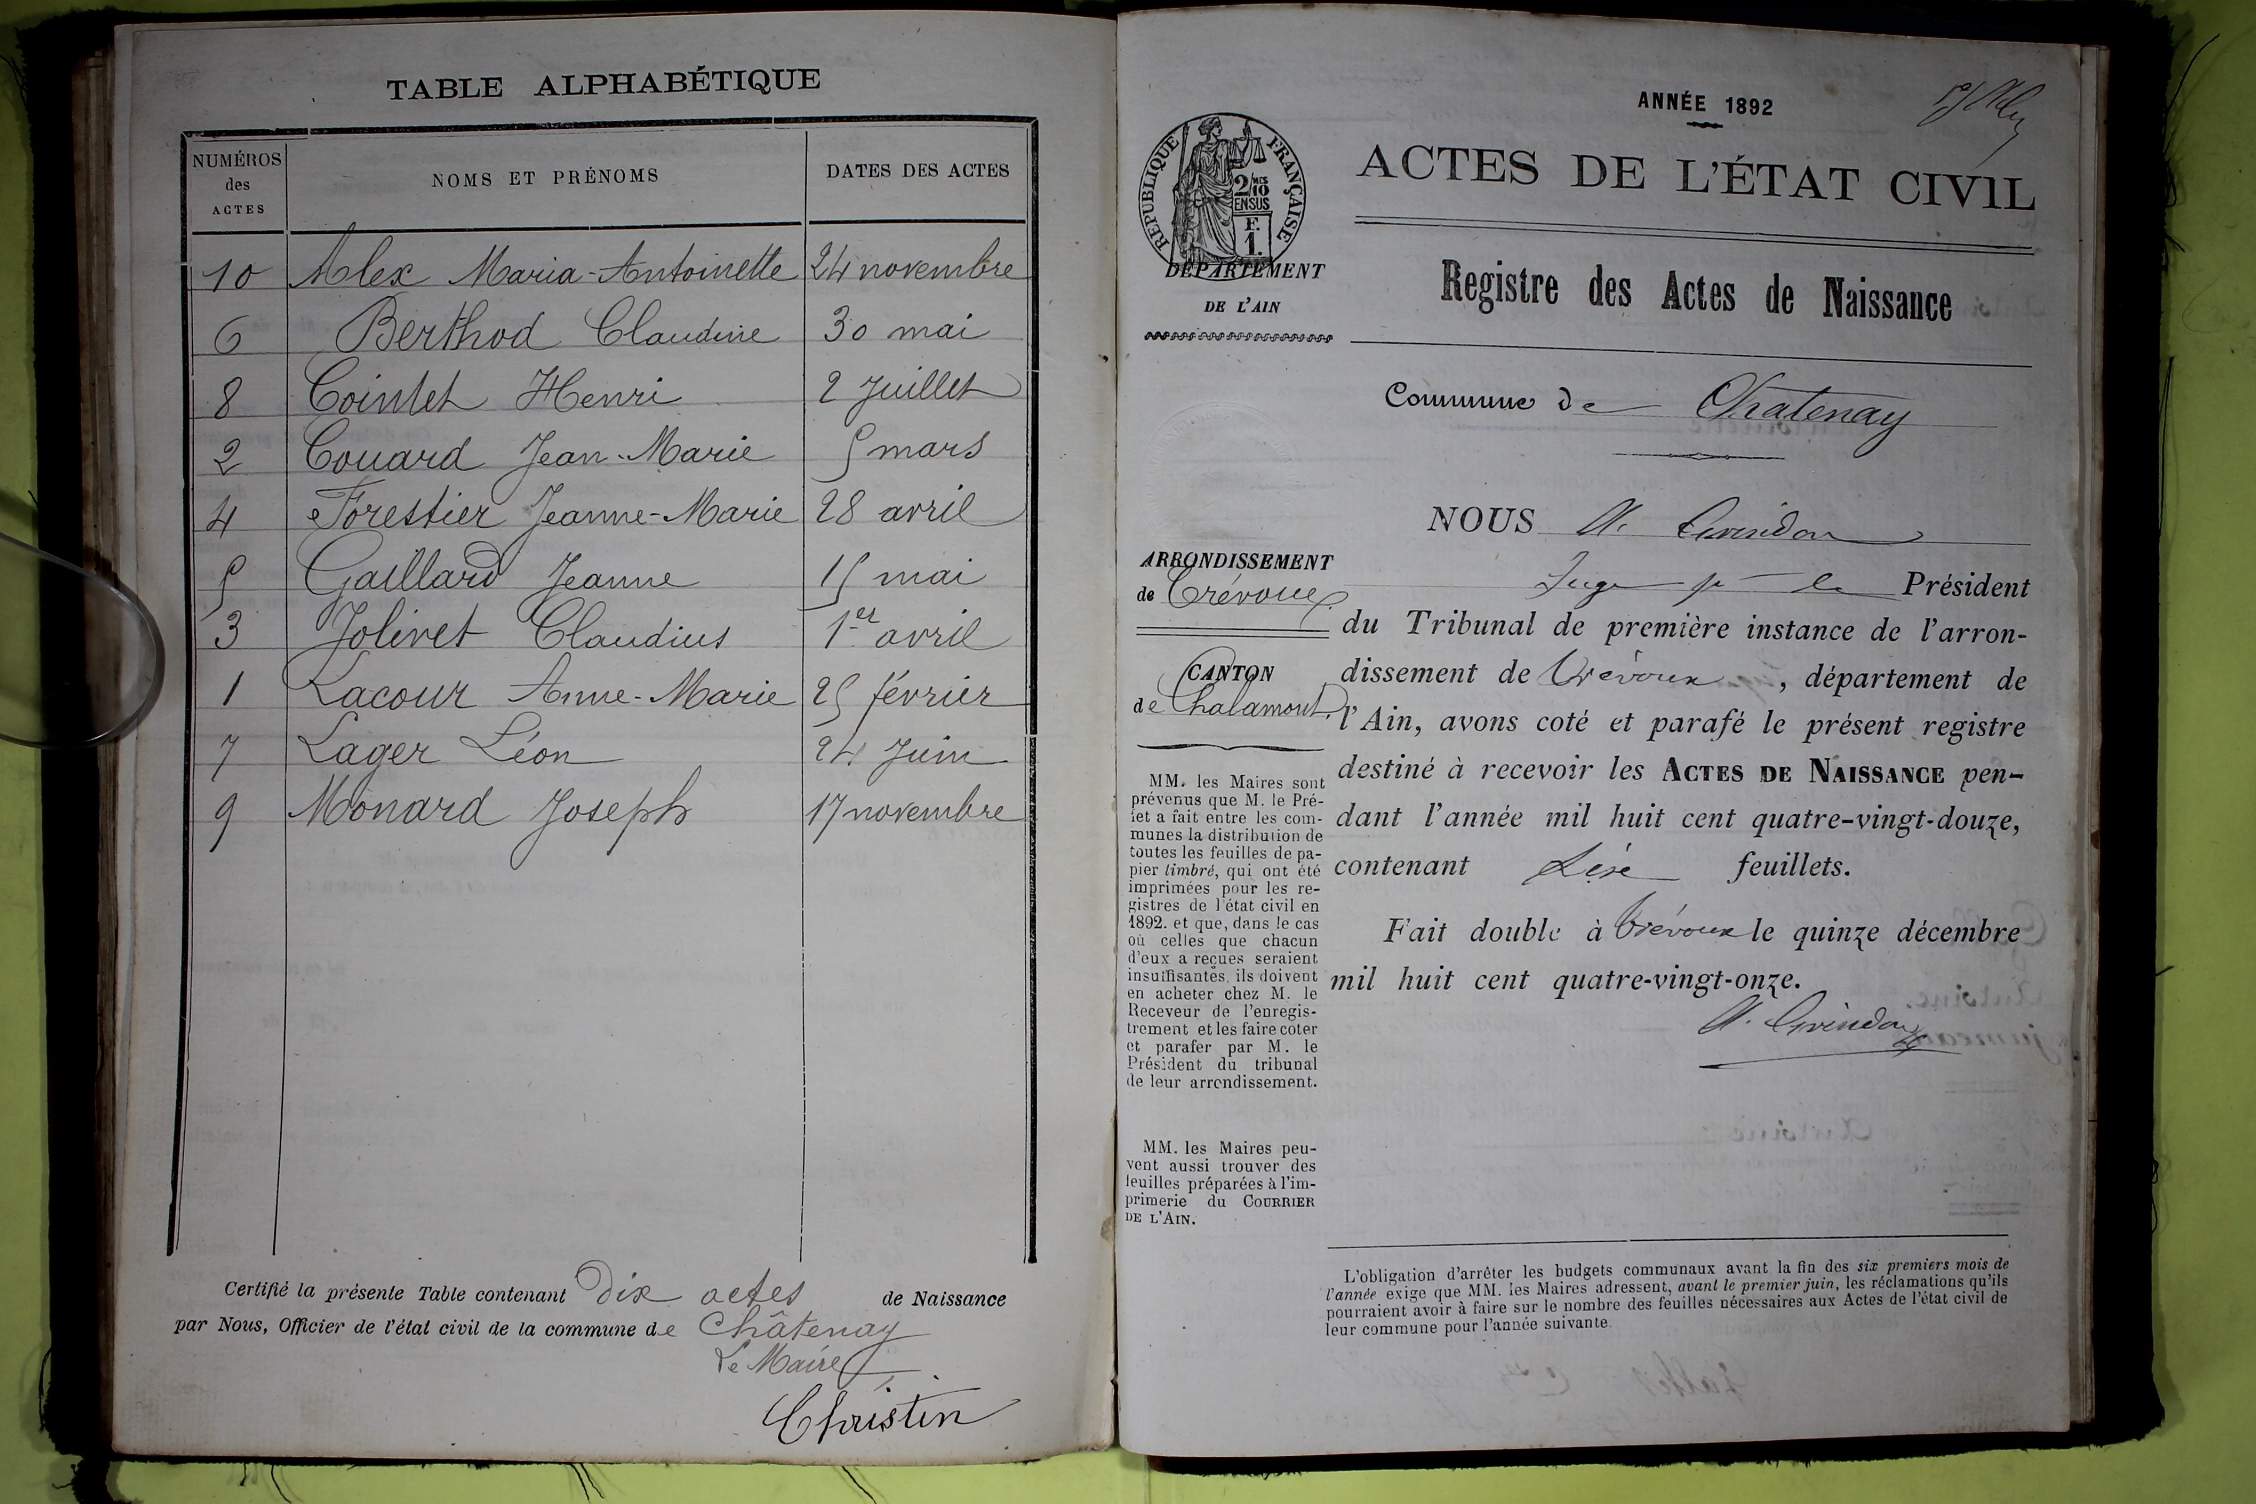 TABLE ALPHABÉTIQUE
NUMÉROS des ACTES NOMS ET PRÉNOMS DATES DES ACTES
10 Alex Maria-Antoinette 24 novembre
6 Berthod Claudine 30 mai
8 Cointet Henri 2 Juillet
2 Couard Jean-Marie 5 mars
4 Forestier Jeanne-Marie 28 avril
5 Gaillard Jeanne 15 mai
3 Jolivet Claudius 1er avril
1 Lacour Anne-Marie 25 février
7 Lager Léon 24 Juin
9 Monard Joseph 17 novembre
Certifié la présente Table contenant Dix actes de Naissance
par Nous, Officier de l'état civil de la commune de Châtenay
Le Maire
Christin
ANNÉE 1892
ACTES DE L'ÉTAT CIVIL
RÉPUBLIQUE FRANÇAISE
2/10
EN SUS
F.
1.
DÉPARTEMENT
DE L'AIN
Registre des Actes de Naissance
Commune de Chatenay
ARRONDISSEMENT
de Trévoux
CANTON
de Chalamont
MM. les Maires sont
prévenus que M. le Pré-
fet a fait entre les com-
munes la distribution de
toutes les feuilles de pa-
pier timbré, qui ont été
imprimées pour les re-
gistres de l'état civil en
1892. et que, dans le cas
où celles que chacun
d'eux a reçues seraient
insuffisantes, ils doivent
en acheter chez M. le
Receveur de l'enregis-
trement et les faire coter
et parafer par M. le
Président du tribunal
de leur arrondissement.
MM. les Maires peu-
vent aussi trouver des
feuilles préparées à l'im-
primerie du COURRIER
DE L'AIN.
NOUS
Juge pr le Président
du Tribunal de première instance de l'arron-
dissement de Trévoux, département de
l'Ain, avons coté et parafé le présent registre
destiné à recevoir les ACTES DE NAISSANCE pen-
dant l'année mil huit cent quatre-vingt-douze,
contenant feuillets.
Fait double à Trévoux le quinze décembre
mil huit cent quatre-vingt-onze.
L'obligation d'arrêter les budgets communaux avant la fin des six premiers mois de
l'année exige que MM. les Maires adressent, avant le premier juin, les réclamations qu'ils
pourraient avoir à faire sur le nombre des feuilles nécessaires aux Actes de l'état civil de
leur commune pour l'année suivante.